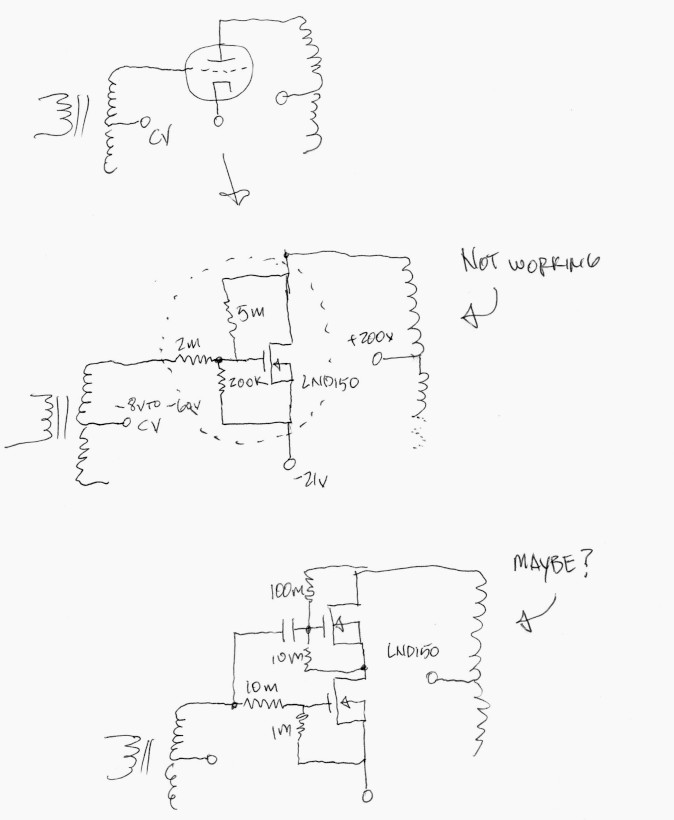 CV
NOT WORKING
5M
+200V
2M
200K
LND150
-8V TO -60V
CV
-21V
MAYBE?
100M
10M
LND150
10M
1M